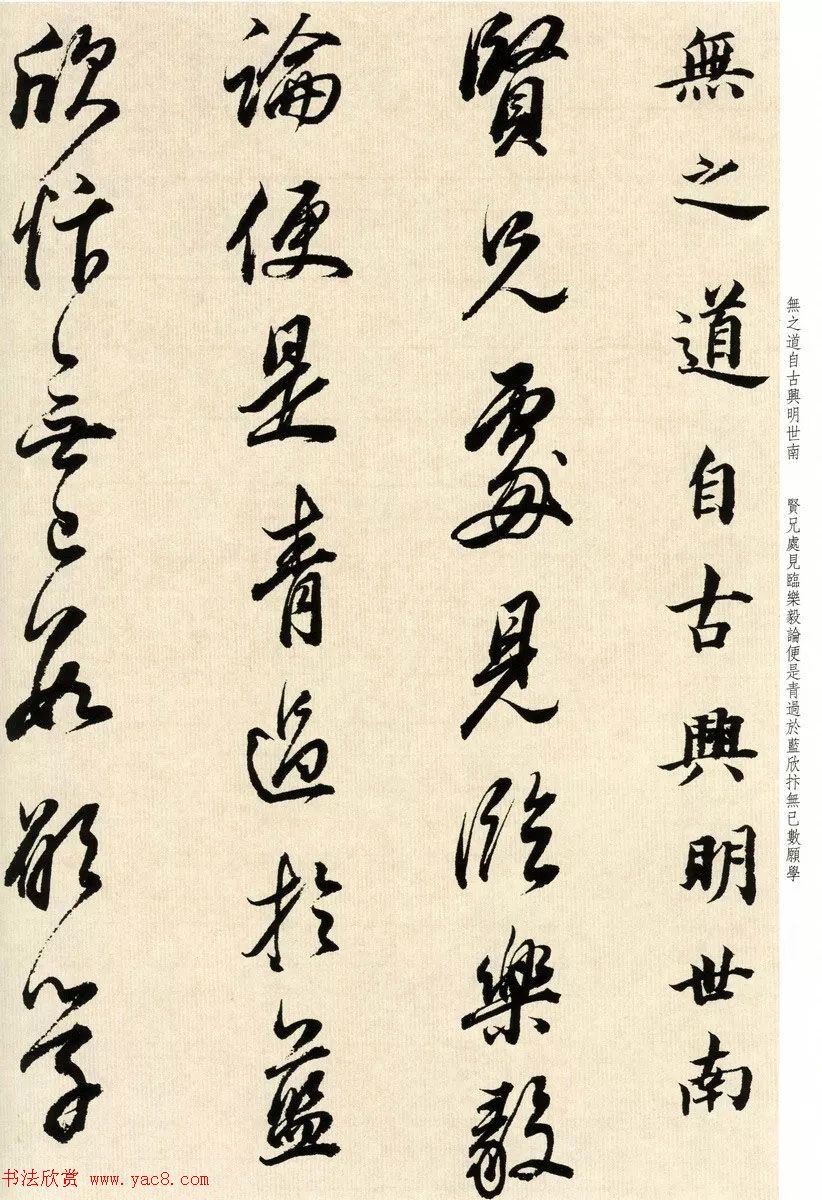 無之道自古興明世南
賢兄處見臨樂毅
論便是青過於藍
欣忭無已數願學
無之道自古興明世南 賢兄處見臨樂毅論便是青過於藍欣忭無已數願學
书法欣赏 www.yac8.com